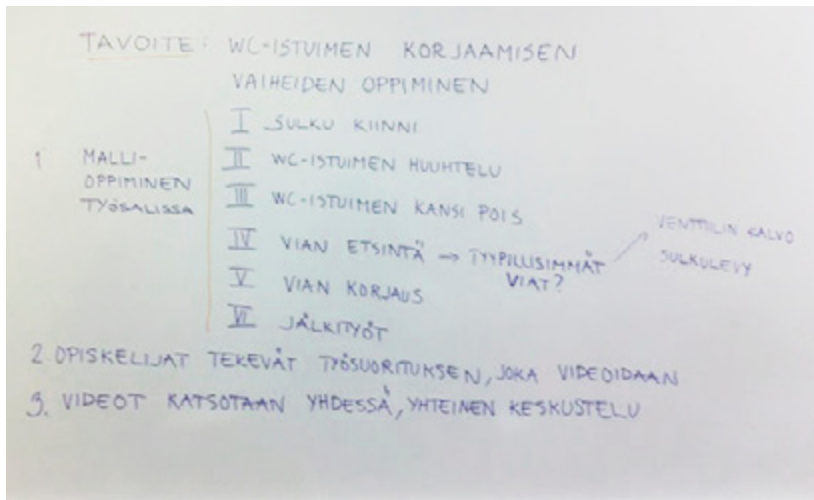 TAVOITE: WC-ISTUIMEN KORJAAMISEN
VAIHEIDEN OPPIMINEN
1 MALLI-
OPPIMINEN
TYÖSALISSA
I SULKU KIINNI
II WC-ISTUIMEN HUUHTELU
III WC-ISTUIMEN KANSI POIS
IV VIAN ETSINTÄ → TYYPILLISIMMÄT
VIAT?
VENTTIILIN KALVO
SULKULEVY
V VIAN KORJAUS
VI JÄLKITYÖT
2. OPISKELIJAT TEKEVÄT TYÖSUORITUKSEN, JOKA VIDEOIDAAN
3. VIDEOT KATSOTAAN YHDESSÄ, YHTEINEN KESKUSTELU